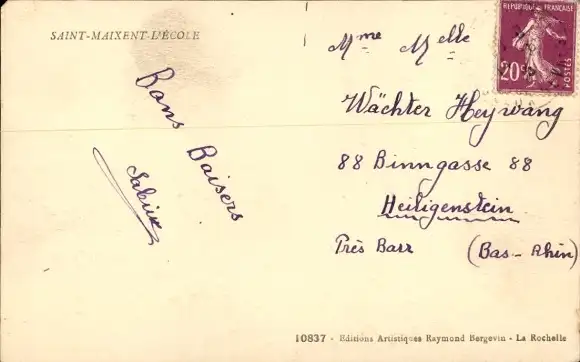 SAINT-MAIXENT-L'ÉCOLE
Bons Baisers
Sabine
RÉPUBLIQUE FRANÇAISE
20c
POSTES
Mme Melle
Wächter Heywang
88 Binngasse 88
Heiligenstein
Près Barr (Bas-Rhin)
10837 - Editions Artistiques Raymond Bergevin - La Rochelle